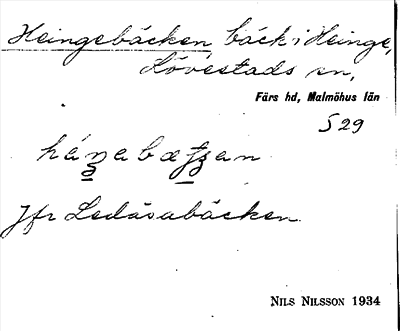 Heingebäcken, bäck i Heinge,
Lövestads sn,
Färs hd, Malmöhus län
S 29
Jfr Ledåsabäcken
NILS NILSSON 1934